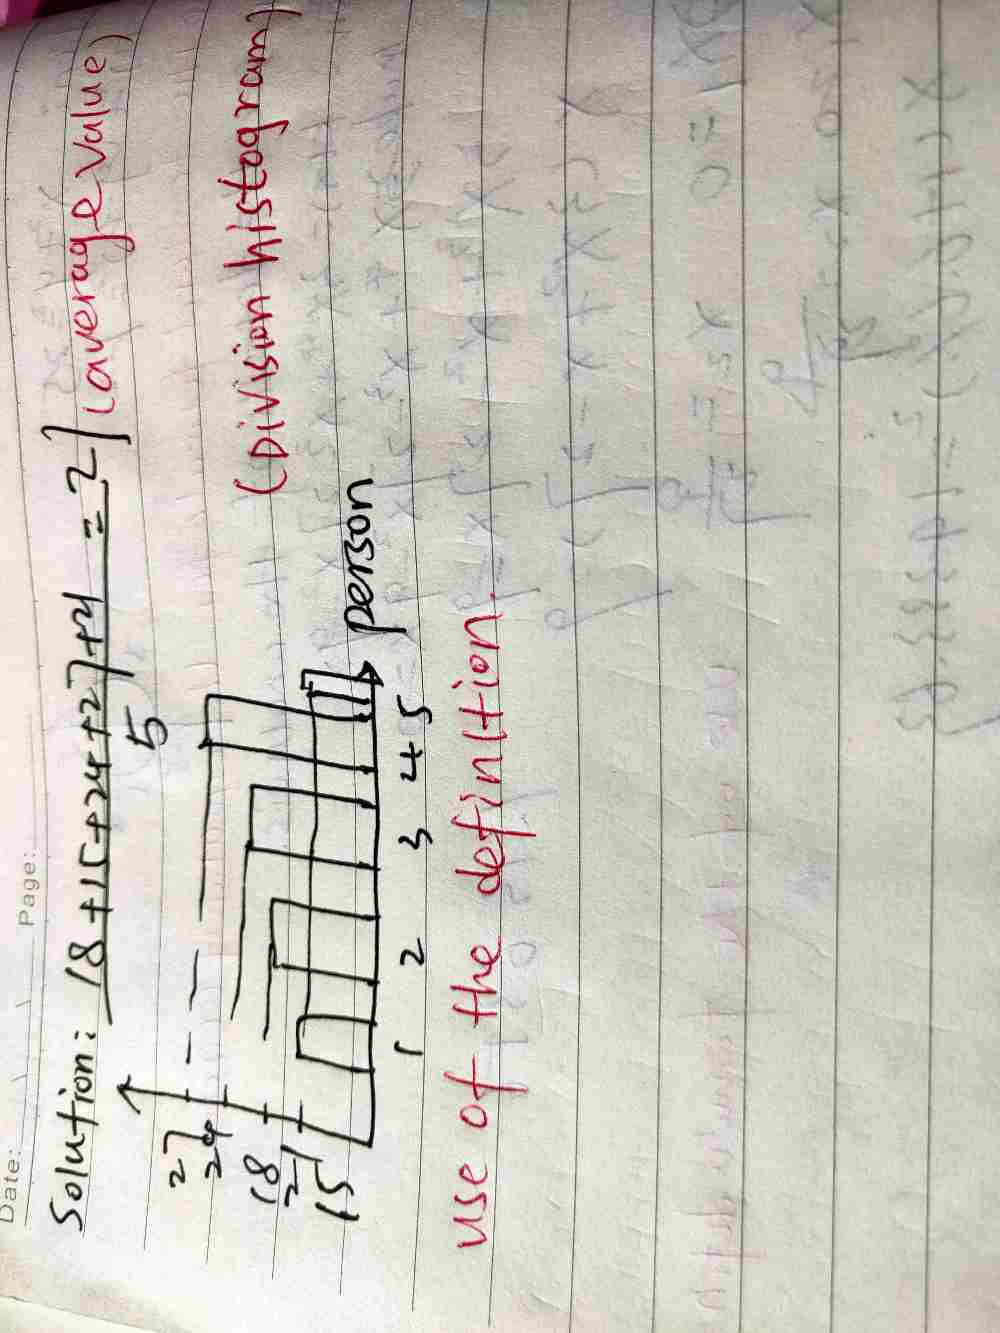 Date: Page:
Solution: 18+15+24+27+21 = 21 (average value)
5
(Division histogram)
27
24
18
21
15
person
1 2 3 4 5
use of the definition.